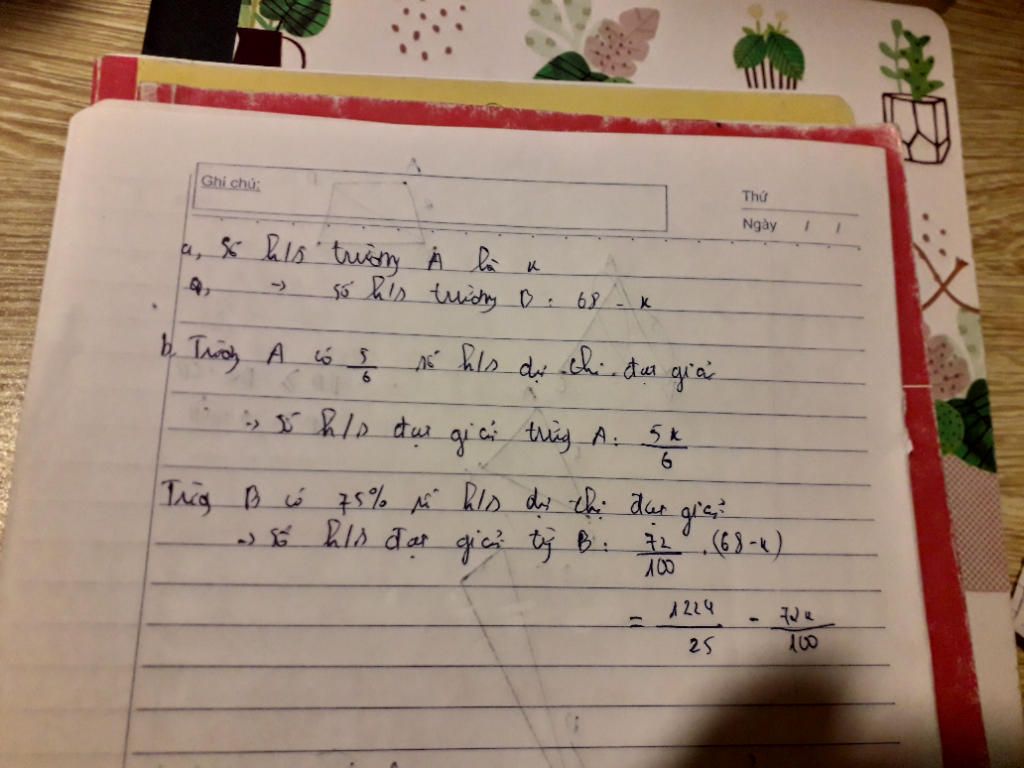 Ghi chú:
Thứ
Ngày / /
A
a, Số h/s trường A là x
a, → số h/s trường B : 68 - x
b, Trường A có 5/6 số h/s dự thi đạt giải
→ Số h/s đạt giải trường A: 5x/6
Trường B có 75% số h/s dự thi đạt giải
→ Số h/s đạt giải B: 72/100 .(68-x)
= 1224/25 - 72x/100